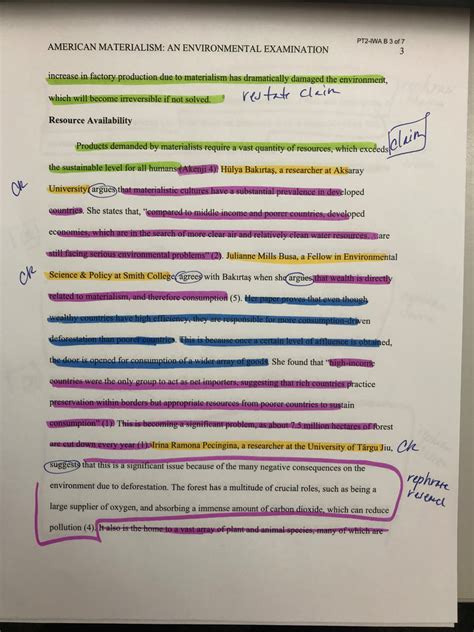 PT2-IWA B 3 of 7
AMERICAN MATERIALISM: AN ENVIRONMENTAL EXAMINATION 3
increase in factory production due to materialism has dramatically damaged the environment,
which will become irreversible if not solved. restate claim
Resource Availability
Products demanded by materialists require a vast quantity of resources, which exceeds claim
the sustainable level for all humans (Akenji 4). Hülya Bakırtaş, a researcher at Aksaray
CR University, argues that materialistic cultures have a substantial prevalence in developed
countries. She states that, "compared to middle income and poorer countries, developed
economies, which are in the search of more clear air and relatively clean water resources, are
still facing serious environmental problems" (2). Julianne Mills Busa, a Fellow in Environmental
CR Science & Policy at Smith College, agrees with Bakırtaş when she argues that wealth is directly
related to materialism, and therefore consumption (5). Her paper proves that even though
wealthy countries have high efficiency, they are responsible for more consumption-driven
deforestation than poorer countries. This is because once a certain level of affluence is obtained,
the door is opened for consumption of a wider array of goods. She found that "high-income
countries were the only group to act as net importers, suggesting that rich countries practice
preservation within borders but appropriate resources from poorer countries to sustain
consumption" (1). This is becoming a significant problem, as about 7.3 million hectares of forest
are cut down every year (1). Irina Ramona Pecingina, a researcher at the University of Târgu Jiu, CR
suggests that this is a significant issue because of the many negative consequences on the
environment due to deforestation. The forest has a multitude of crucial roles, such as being a rephrase
large supplier of oxygen, and absorbing a immense amount of carbon dioxide, which can reduce
pollution (4). It also is the home to a vast array of plant and animal species, many of which are